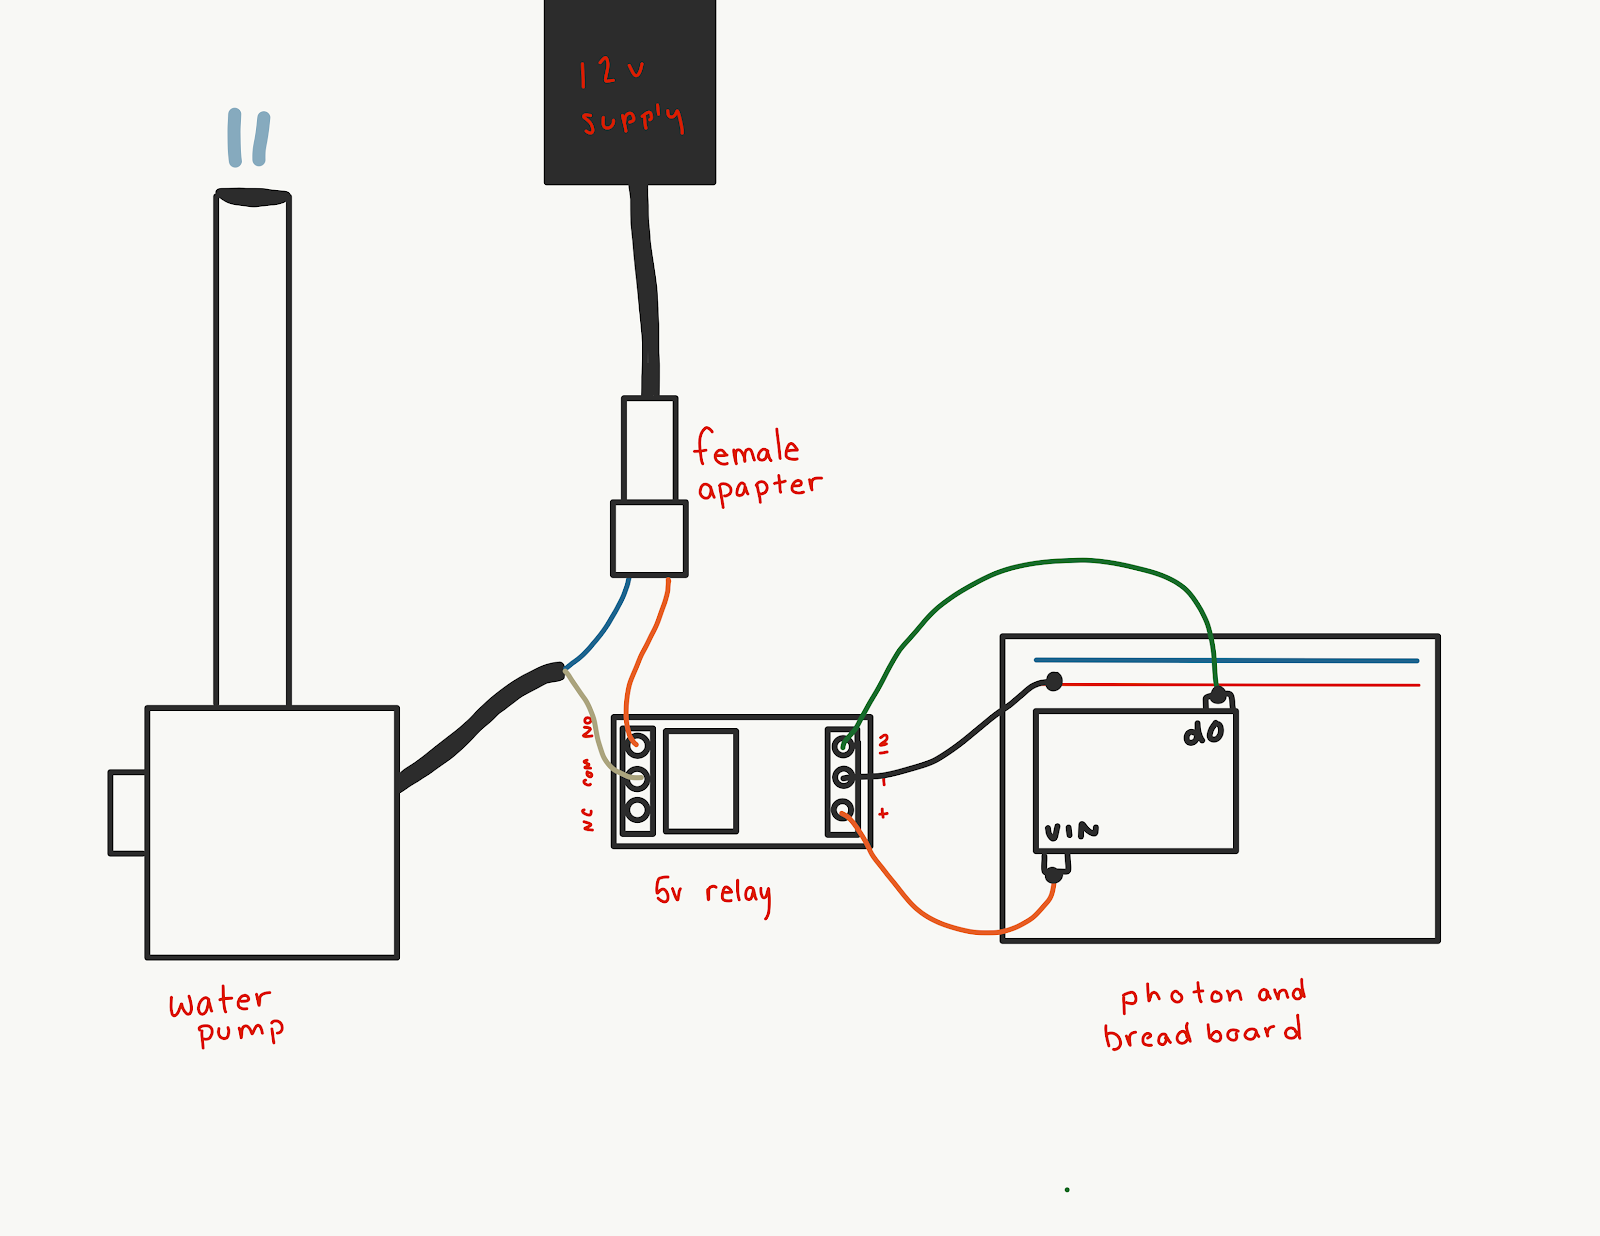 12v
supply
female
apapter
NO
COM
NC
IN
-
+
5v relay
dO
VIN
water
pump
photon and
bread board